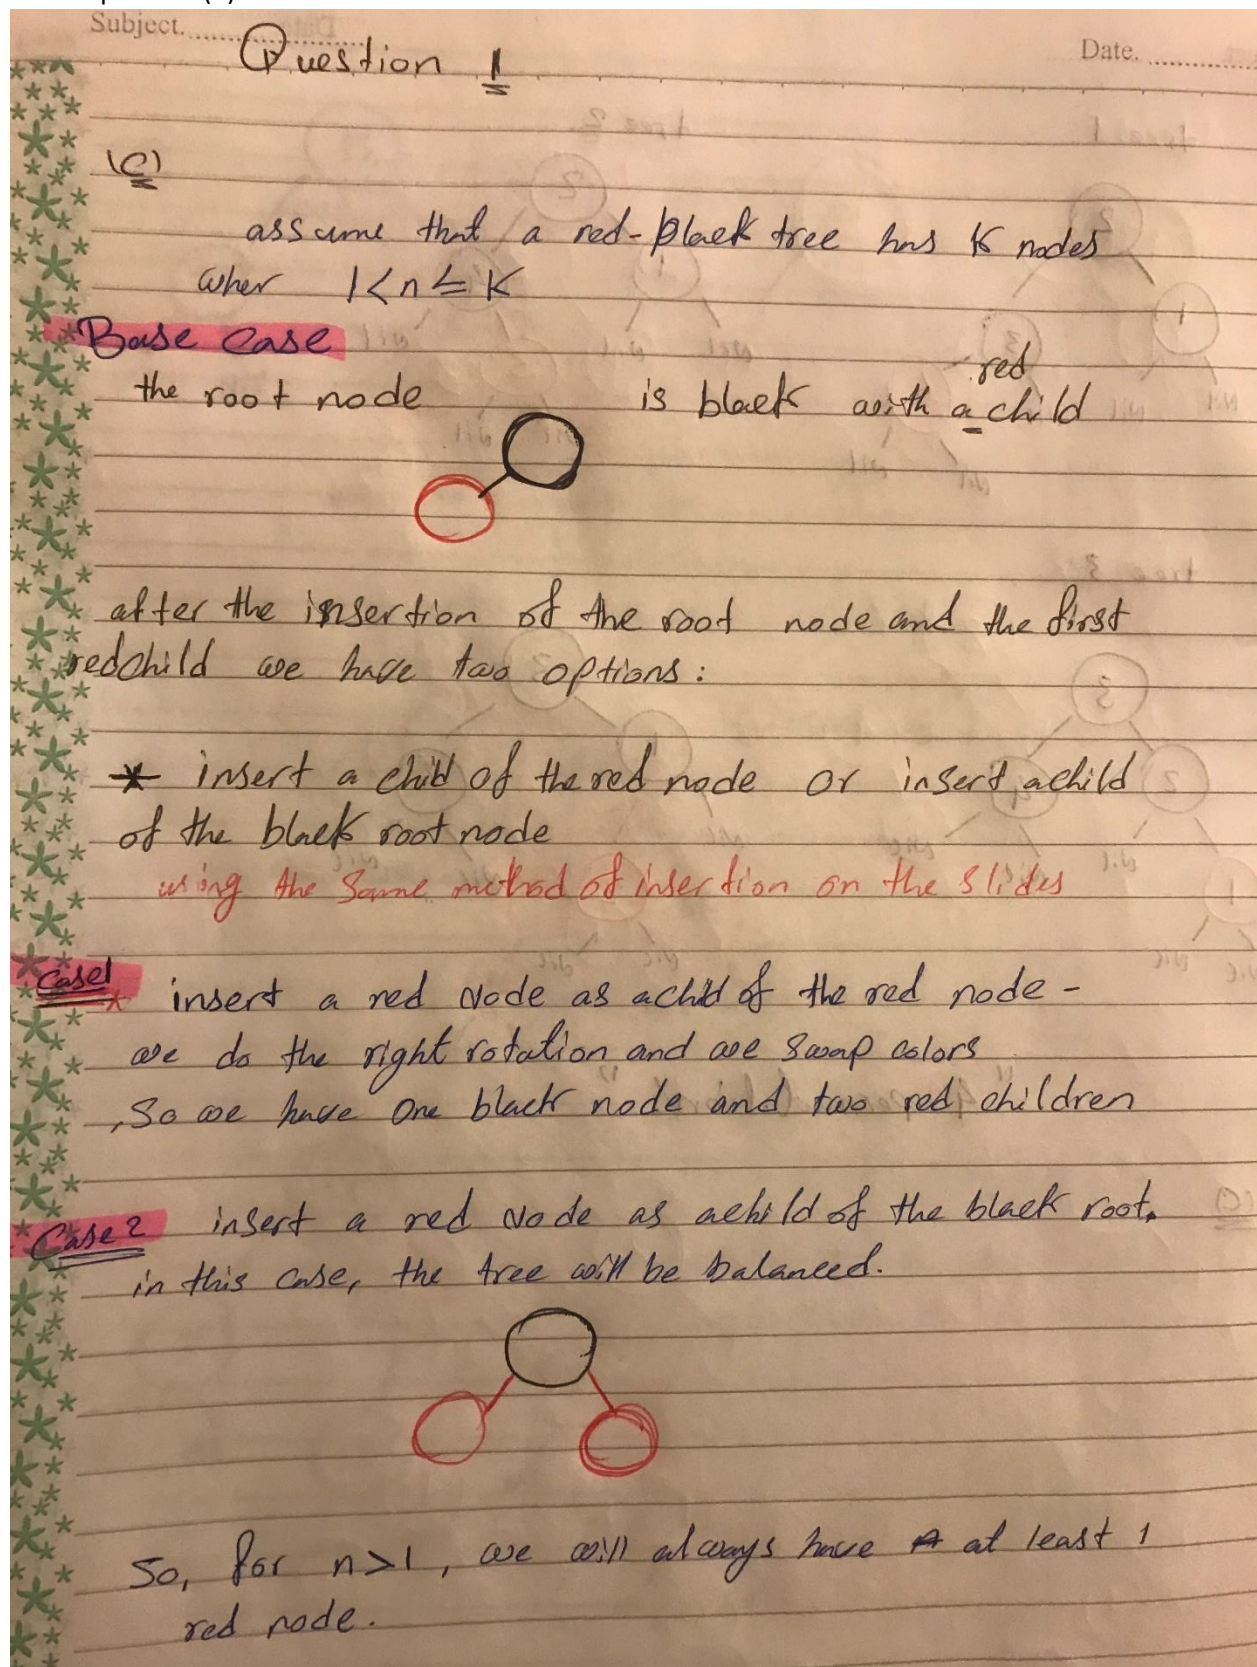 Subject.
Date.
Question 1
(C)
assume that a red-black tree has K nodes
wher 1<n≤K
Base case
the root node is black with a red child
after the insertion of the root node and the first
red child we have two options:
* insert a child of the red node or insert a child
of the black root node
using the same method of insertion on the slides
Case1
insert a red Node as a child of the red node -
we do the right rotation and we swap colors
, So we have one black node and two red children
Case 2
insert a red Node as a child of the black root.
in this case, the tree will be balanced.
So, for n>1, we will always have at least 1
red node.